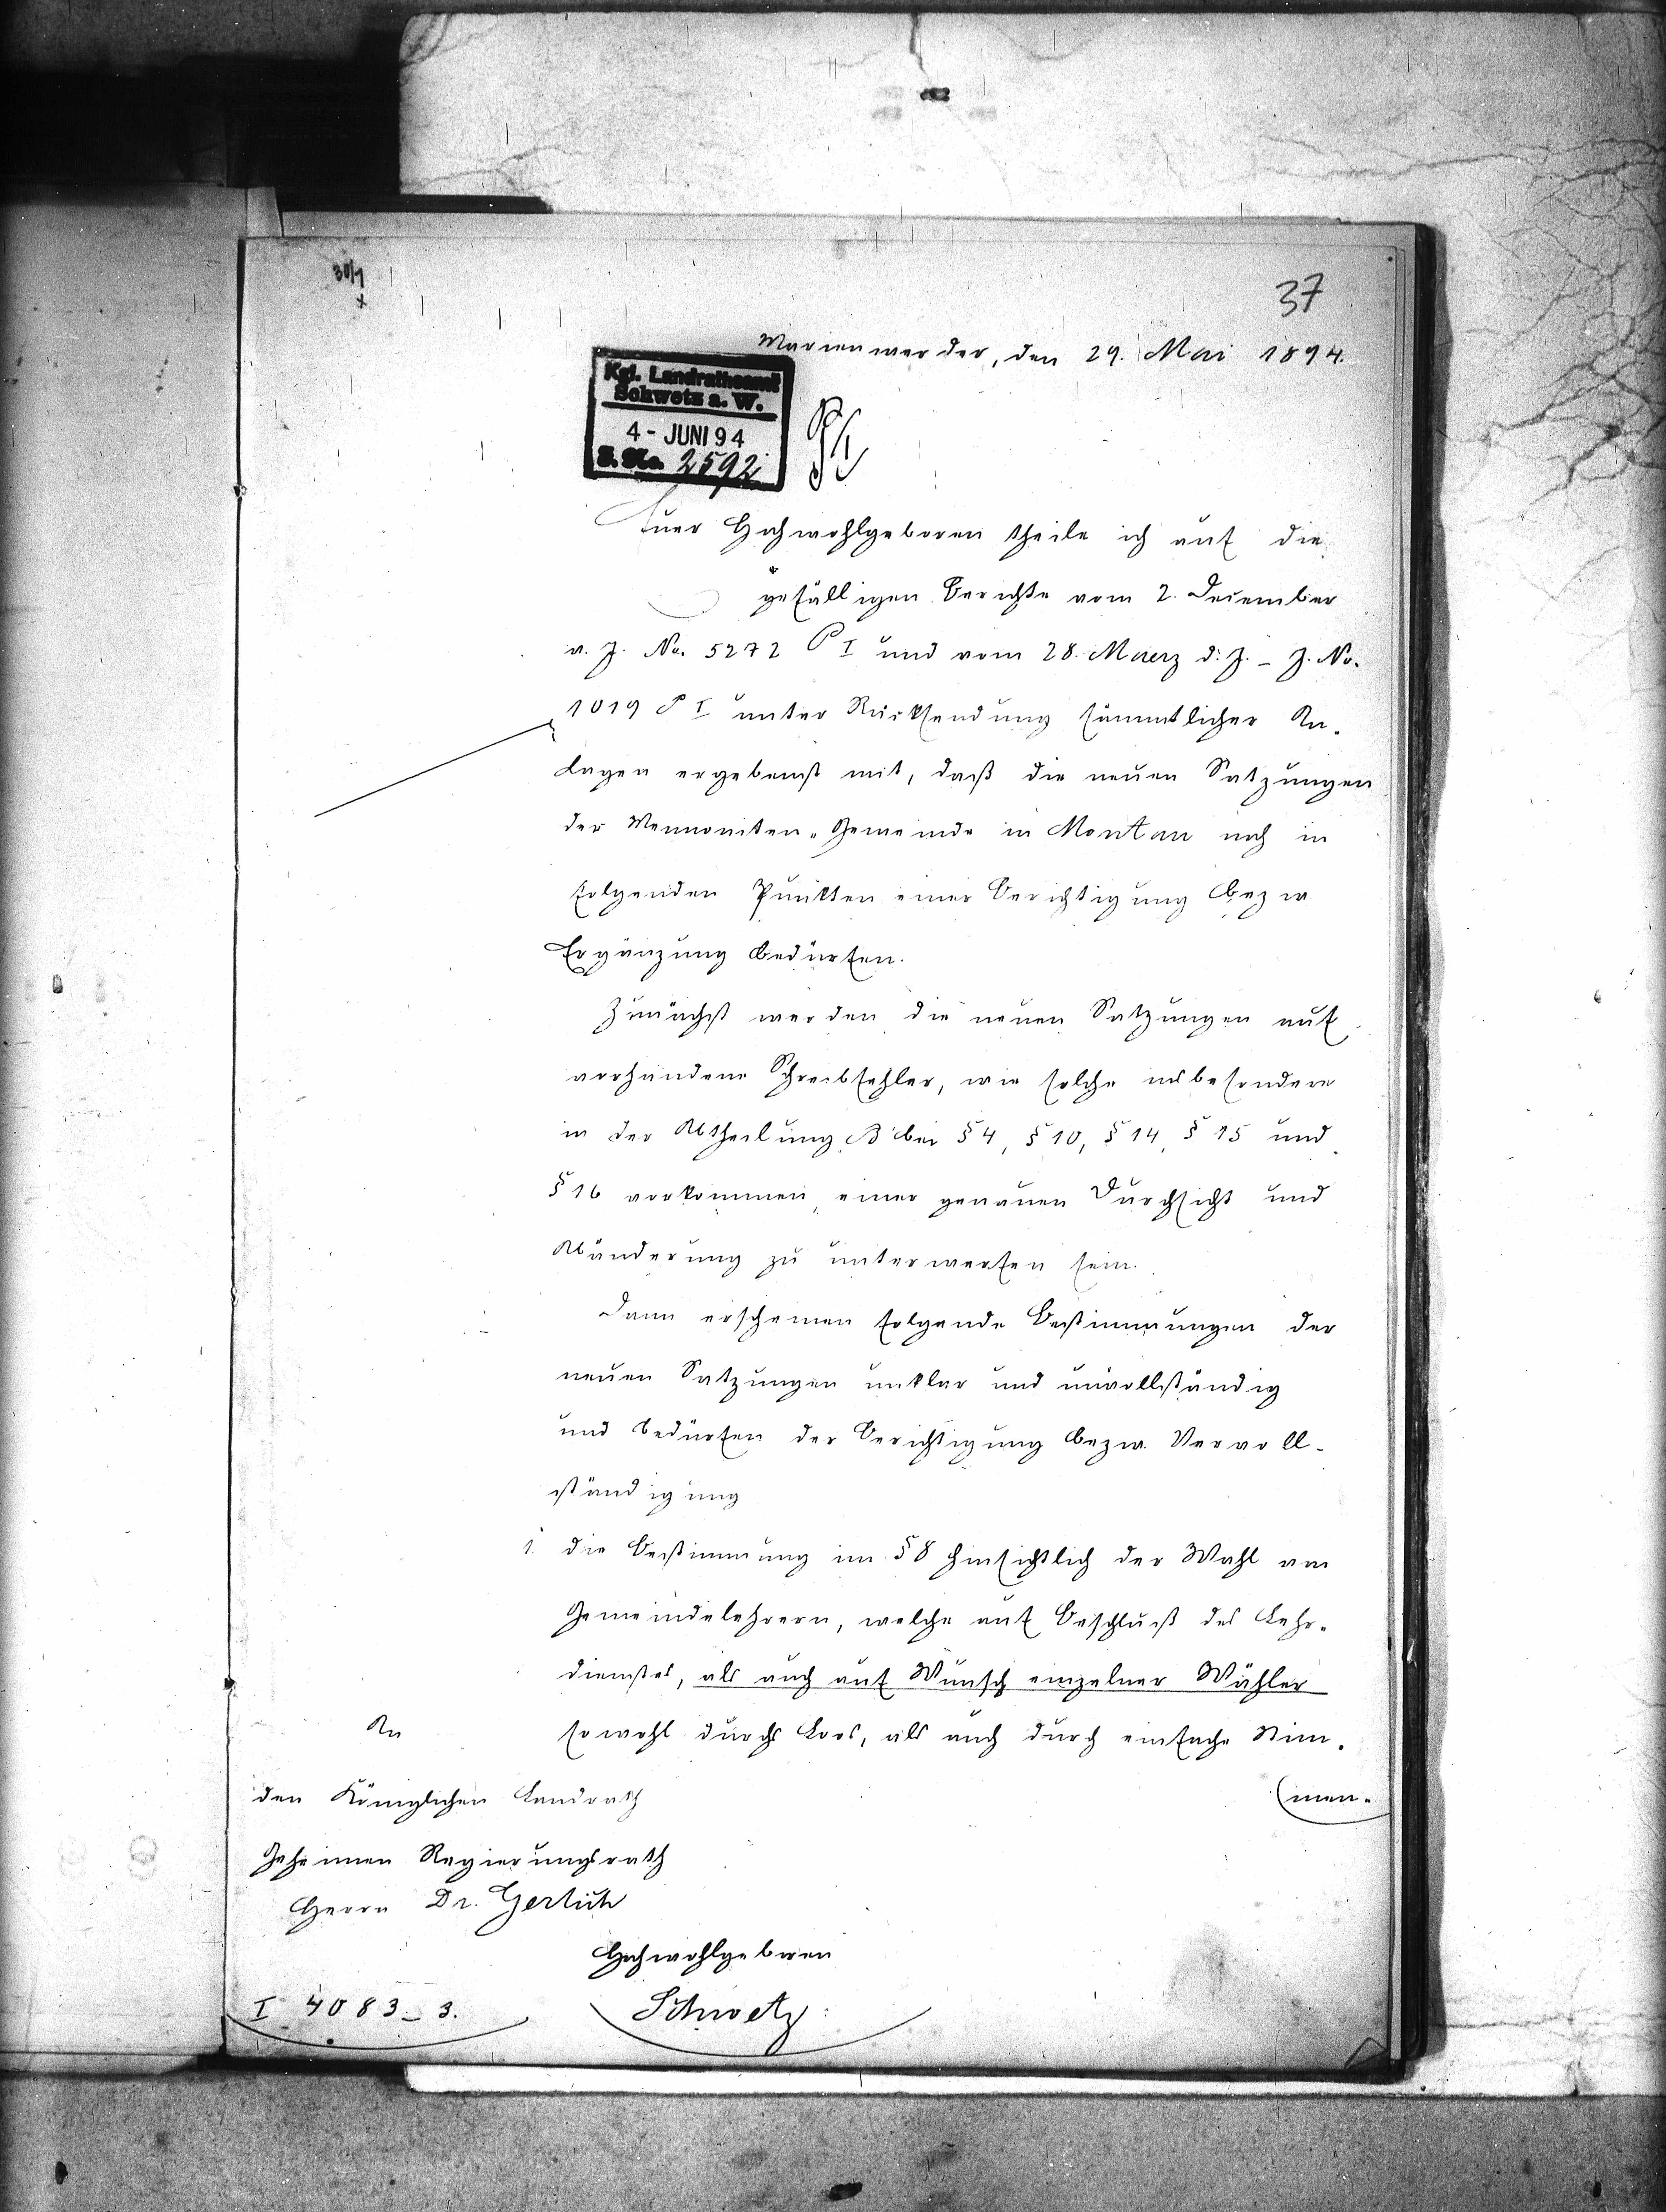 37
Marienwerder, den 29. Mai 1894.
Kgl. Landrathsamt
Schwetz a. W.
4 - JUNI 94
J. No. 2592
Euer Hochwohlgeboren theile ich auf die
gefälligen Berichte vom 2. Dezember
v. J. No. 5272 P I und vom 28. Maerz d. J. - J. No.
1019 P I unter Rücksendung sämmtlicher An-
lagen ergebenst mit, daß die neuen Satzungen
der Mennoniten-Gemeinde in Montau noch in
folgenden Punkten einer Berichtigung bezw
Ergänzung bedürfen.
Zunächst werden die neuen Satzungen auf
vorhandene Schreibfehler, wie solche insbesondere
in der Abtheilung B bei § 4, § 10, § 14, § 15 und
§ 16 vorkommen, einer genauen Durchsicht und
Abänderung zu unterwerfen sein.
Dann erscheinen folgende Bestimmungen der
neuen Satzungen unklar und unvollständig
und bedürfen der Berichtigung bezw. Vervoll-
ständigung
1. die Bestimmung im § 8 hinsichtlich der Wahl von
Gemeindelehrern, welche auf Beschluß des Lehr-
dienstes, als auch auf Wunsch einzelner Wähler
sowohl durchs Loos, als auch durch einfache Stim-
men-
An
den Königlichen Landrath
Geheimen Regierungsrath
Herrn Dr. Gerlich
Hochwohlgeboren
Schwetz
I 4083_3.